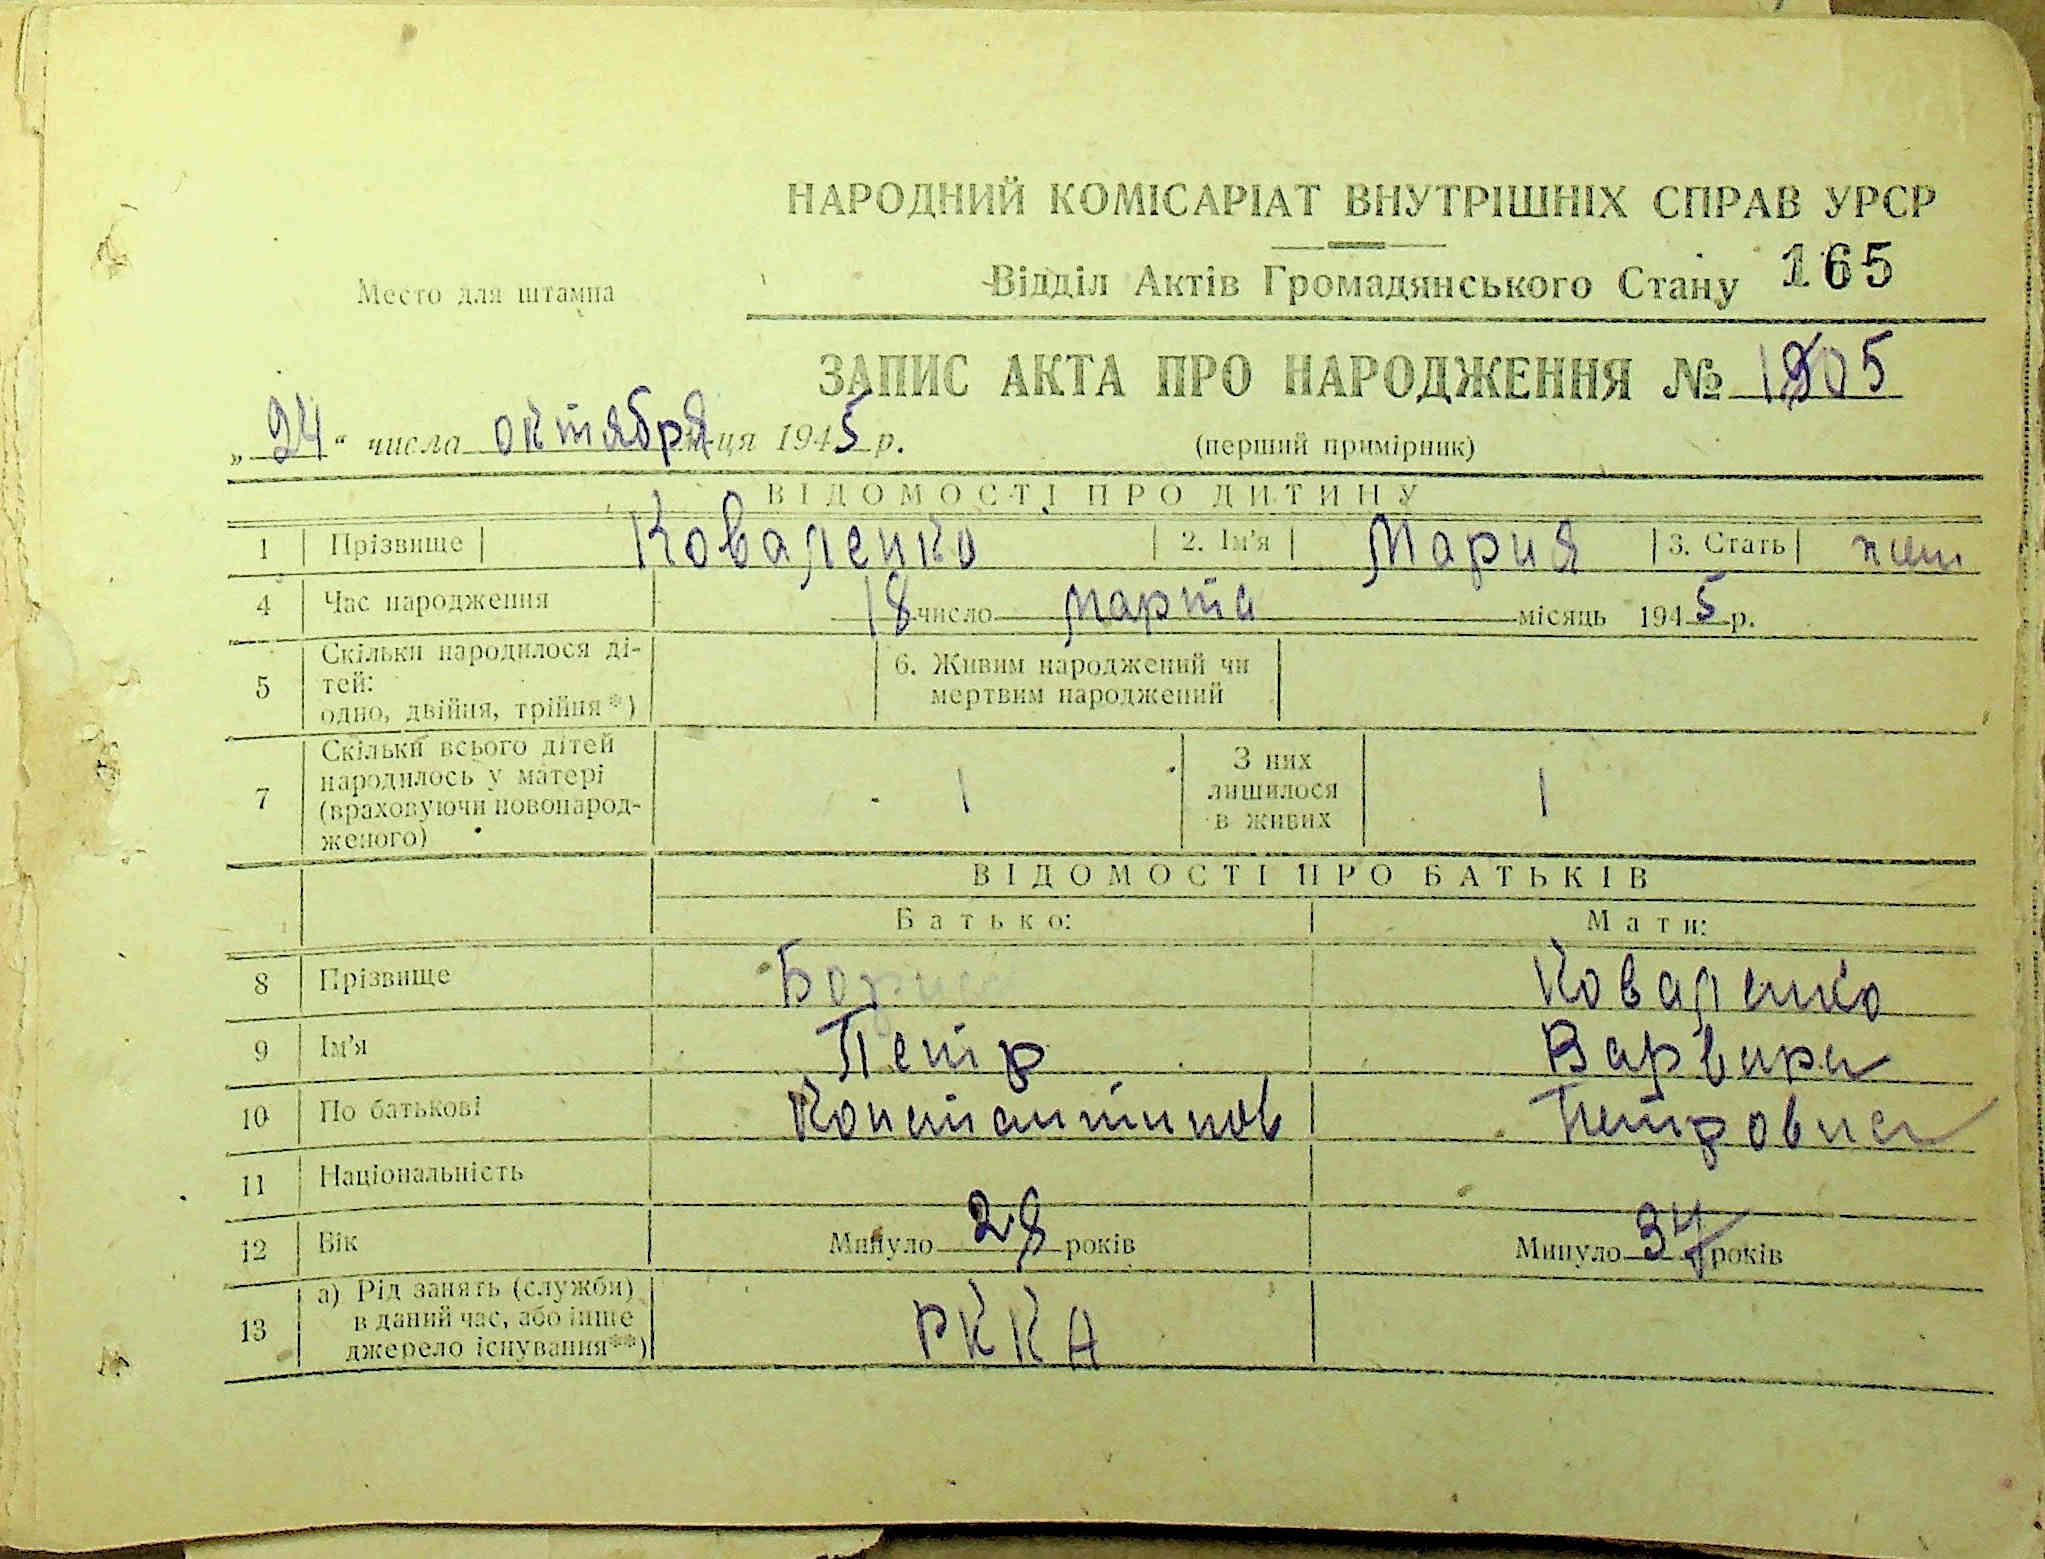 НАРОДНИЙ КОМІСАРІАТ ВНУТРІШНІХ СПРАВ УРСР
Место для штампа
Відділ Актів Громадянського Стану 165
ЗАПИС АКТА ПРО НАРОДЖЕННЯ № 1905
„24“ числа октября м-ця 1945 р.
(перший примірник)
ВІДОМОСТІ ПРО ДИТИНУ
1 Прізвище Коваленко 2. Ім'я Мария 3. Стать жен
4 Час народження 18 число марта місяць 1945 р.
5 Скільки народилося ді-
тей:
одно, двійня, трійня*)
6. Живим народжений чи
мертвим народжений
7 Скільки всього дітей
народилось у матері
(враховуючи новонарод-
женого)
1
З них
лишилося
в живих
1
ВІДОМОСТІ ПРО БАТЬКІВ
Батько: Мати:
8 Прізвище Коваленко
9 Ім'я Петр Варвара
10 По батькові Константинов Петровна
11 Національність
12 Вік Минуло 28 років Минуло 34 років
13 а) Рід занять (служби)
в даний час, або інше
джерело існування**)
РККА